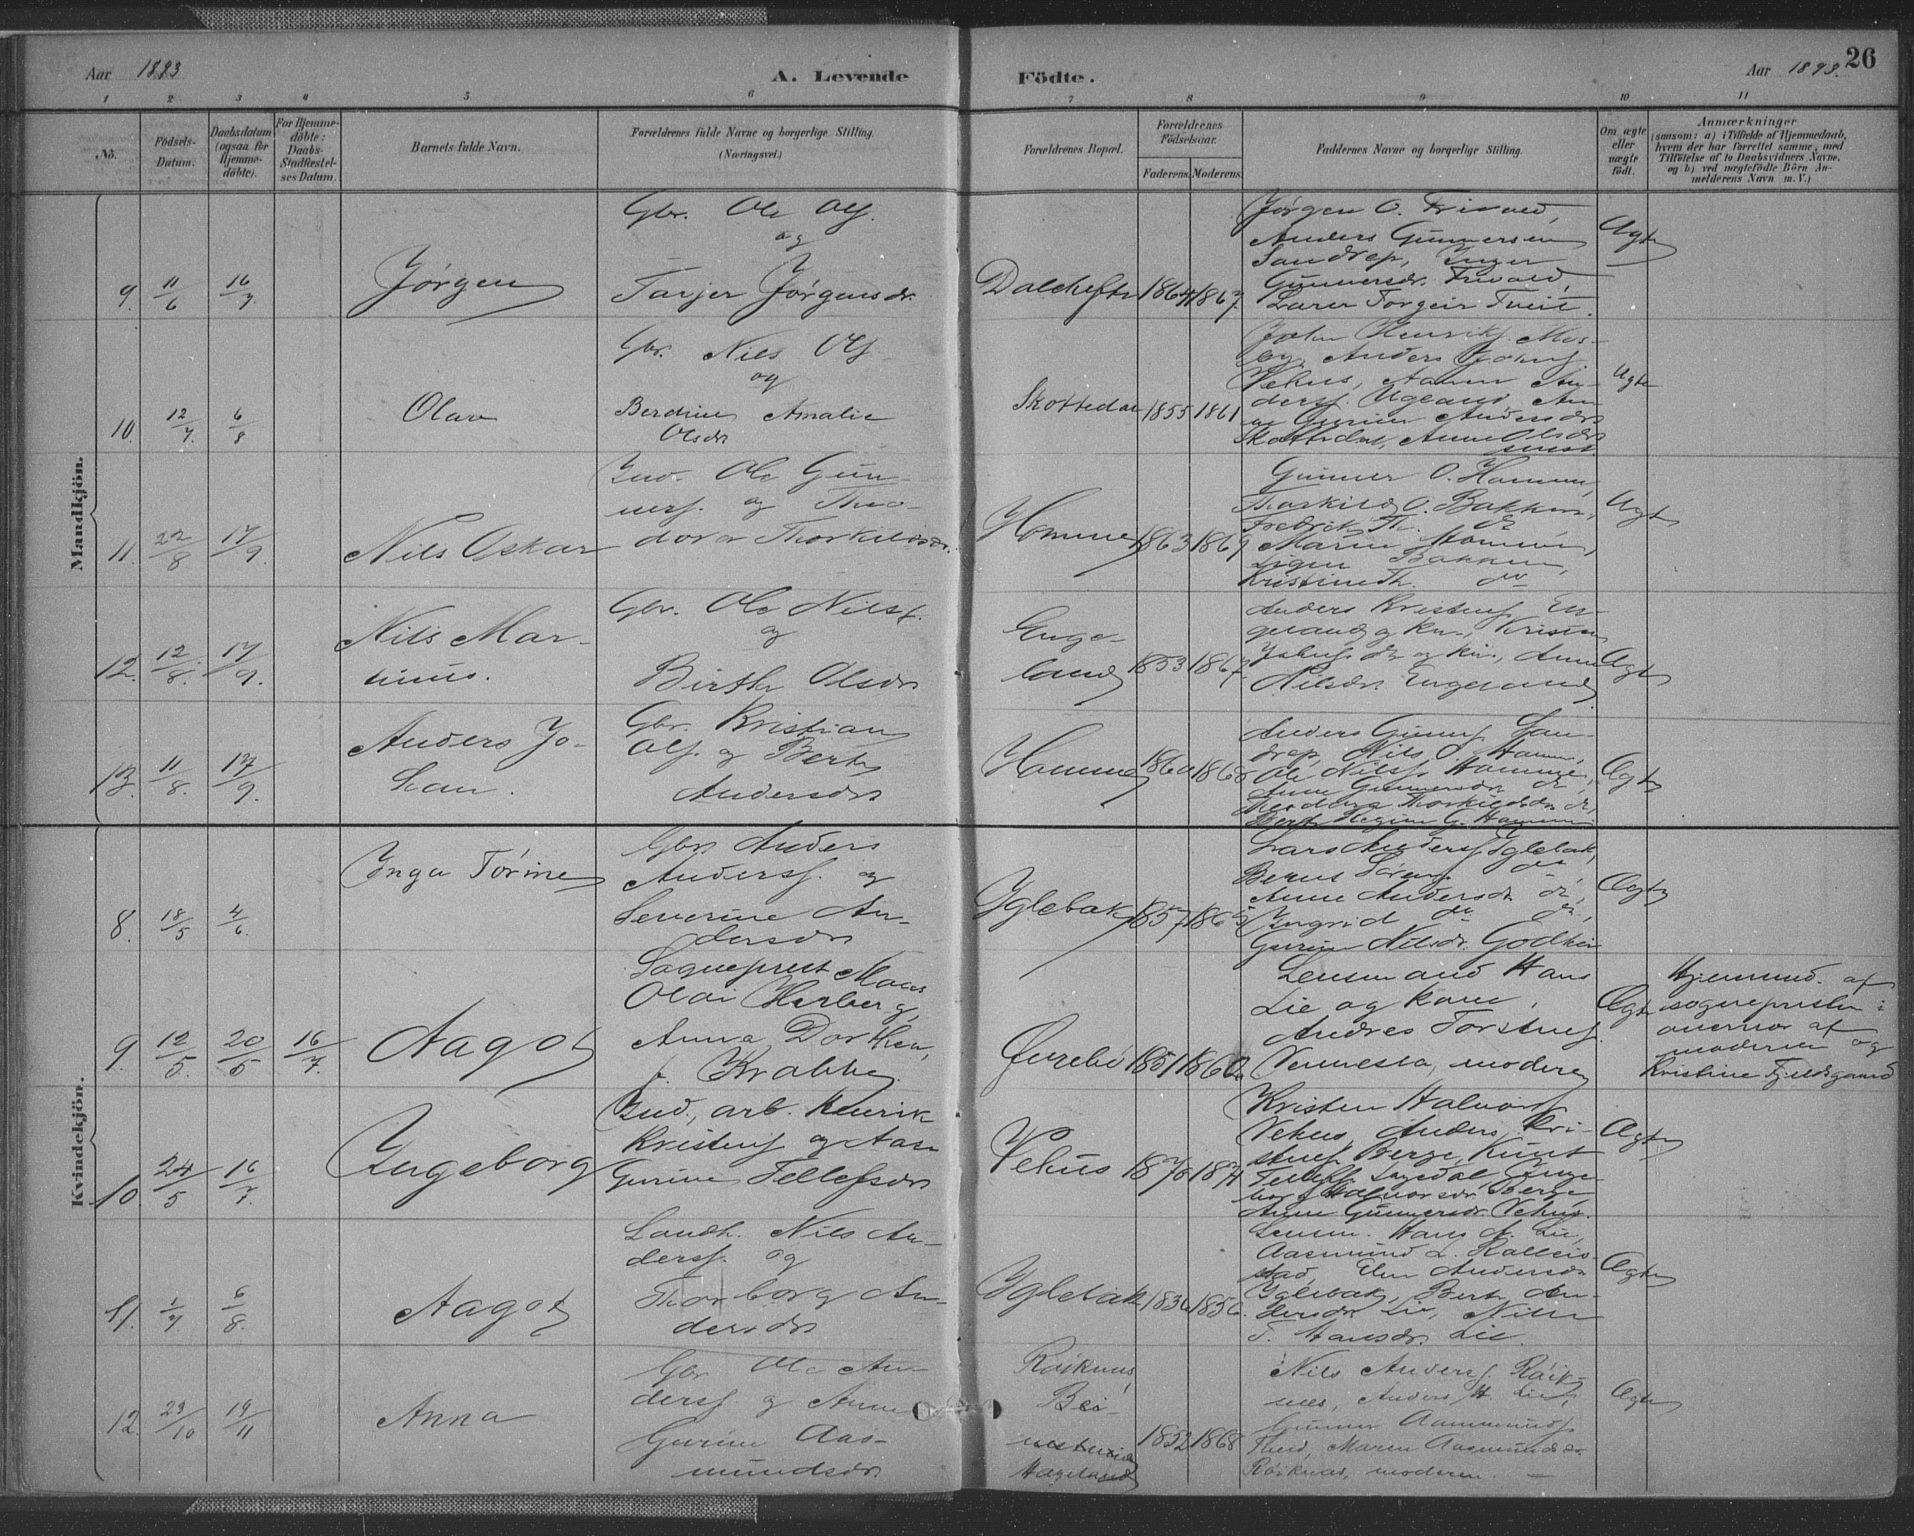 Aar 1893 A. Levende Födte. Aar 1893. 26
1 2 3 4 5 6 7 8 9 10 11
No.
Födsels-Datum.
Daabsdatum (ogsaa for Hjemme-döbte).
For Hjemme-döbte: Daabs-Stadfæstel-ses Datum.
Barnets fulde Navn.
Forældrenes fulde Navne og borgerlige Stilling.
(Næringsvei.)
Forældrenes Bopæl.
Forældrenes Födselsaar.
Faderens. Moderens.
Faddernes Navne og borgerlige Stilling.
Om ægte eller uægte födt.
Anmærkninger
(saasom: a) i Tilfælde af Hjemmedaab,
hvem der har forrettet samme, med
Tilföielse af to Daabsvidners Navne,
og b) ved uægtefödte Börn An-
melderens Navn m. V.)
Mandkjön.
9. 11/6 16/7 Jørgen
Gbr. Ole Olf.
og
Tarjer Jørgensdr.
1864 1867
Jørgen O. Trivold,
Anders Gunnersen
Sandrip, Inger
Gunnersdr. Trivold,
Lærer Torgeir Tveit.
Ægte
10. 12/7 6/8 Olav
Gbr. Nils Olf
og
Berdine Amalie
Olsdr
Skottedal 1855 1861
John Henrikf. Mos-
by, Anders Johnf
Vehus, Aanen An-
dersf. Ugland, An-
Gurine Andersdr
Skottedal, Anne Olsdr
Ægte
11. 22/8 17/9. Nils Oskar
Ind. Ole Gun-
nerf. og Theo-
dora Thorkildsdr.
Homme 1863 1869
Gunner O. Homme,
Thorkild O. Bakken,
Fredrik Th. do
Maren Homme,
Bakken,
Kristine Th. do
Ægte
12. 12/8. 17/9. Nils Mar-
tinus.
Gbr. Ole Nilsf.
og
Birthe Olsdr
Enge-
land 1853 1867
Anders Kristenf. En-
geland og kone, Kristen
do og kone, Anne
Nilsdr. Engeland
Ægte
13. 11/8. 17/9. Anders Jo-
han.
Gbr. Kristian
Olf. og Berte
Andersdr
Homme 1860 1868
Anders Gunnf. San-
drip, Nils O. Homme,
Ole Nilsf. Homme,
Anne Gunnersdr do,
Thorkildsdr do,
Berte Regine G. Homme
Ægte
Kvindekjön.
8. 18/5 4/6. Inga Tørine
Gbr. Anders
Andersf. og
Severine An-
dersdr
Iglebak 1857 1865
Lars Andersf Iglebak,
Berus Sørens. do,
Anne Andersdr do,
Ingrid do do,
Gurine Nilsdr. Godheim
Ægte
9. 12/5. 20/5 16/7. Aagot
Sogneprest Maas
Olai Herberg,
Anna Dorthea,
f. Krabbe.
Øvrebø 1851 1860
Lensmand Hans
Lie og kone,
Andres Torstenf.
Vennesla, moderen
Ægte
Hjemmed. af
sognepresten i
overvær af
moderen og
Kristine Fjeldsgaard
10. 24/5 16/7. Ingeborg
Ind., arb. Henrik
Kristenf og Aase
Gurine Tellefsdr
Vehus 1870 1874
Kristen Halvorf
Vehus, Anders Kri-
stenf. Berge, Knut
Tellefsf. Sagedal, Inge-
borg Halvorsdr Berge
Anne Gunnersdr. Vehus.
Ægte
11. 1/7 6/8. Aagot
Landh. Nils An-
dersf. og
Thorborg An-
dersdr
Iglebak 1836 1856.
Lensm. Hans A. Lie,
Aasmund L. Ralleis-
stad, Elen Andersdr
Iglebak, Berte An-
dersdr Lie, Nille
T. Hansdr Lie.
Ægte
12. 29/10 19/11 Anna
Gbr Ole An-
dersf og Anne
Gurine Aas-
mundsdr
Røiknes,
Hægeland
1852 1868
Nils Andersf. Røik-
nes, Anders H. Lie,
Gunner Aanmundsf.
Maren Aasmundsdr
Røiknes, moderen. —
Ægte